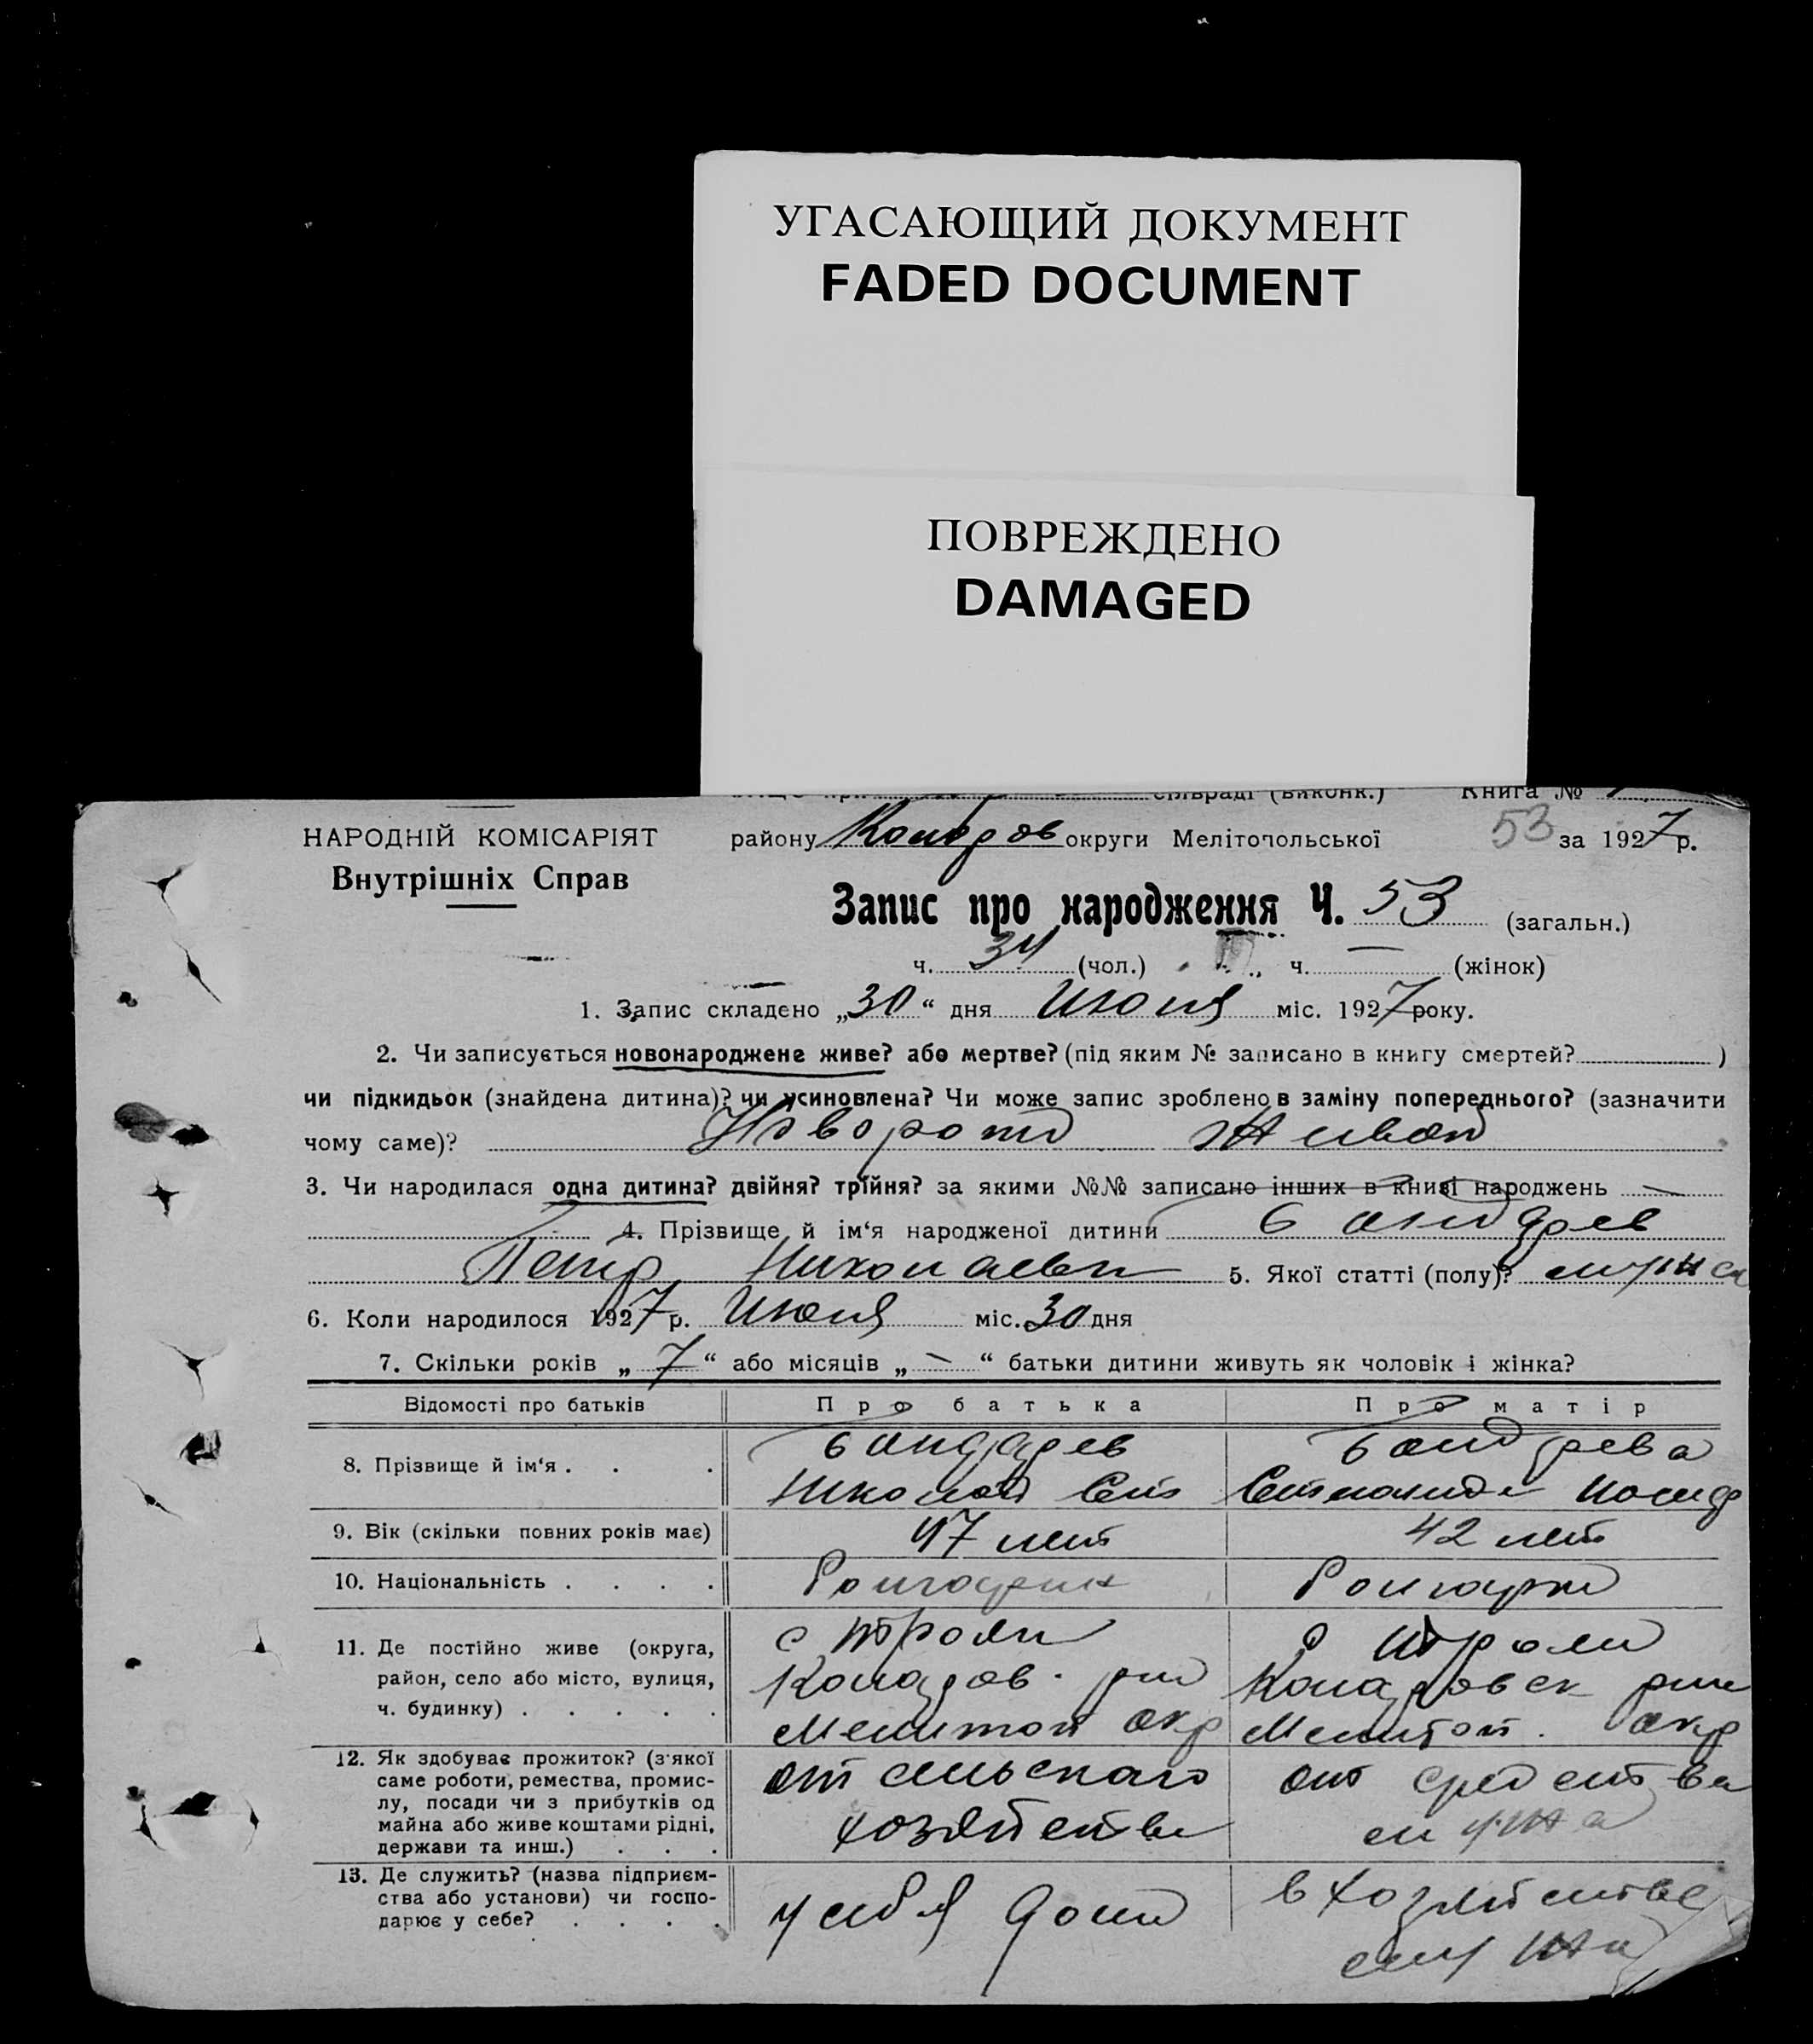 УГАСАЮЩИЙ ДОКУМЕНТ
FADED DOCUMENT
ПОВРЕЖДЕНО
DAMAGED
сільраді (виконк.) Книга №
НАРОДНІЙ КОМІСАРІЯТ
Внутрішніх Справ
району округи Мелітопольської 53 за 1927 р.
Запис про народження Ч. 53 (загальн.)
ч. 34 (чол.) ч. — (жінок)
1. Запис складено „30“ дня Июня міс. 1927 року.
2. Чи записується новонароджене живе? або мертве? (під яким № записано в книгу смертей? )
чи підкидьок (знайдена дитина)? чи усиновлена? Чи може запис зроблено в заміну попереднього? (зазначити
чому саме)?
3. Чи народилася одна дитина? двійня? трійня? за якими №№ записано інших в книзі народжень —
4. Прізвище й ім‘я народженої дитини
Петр 5. Якої статті (полу)?
6. Коли народилося 1927 р. Июня міс. 30 дня
7. Скільки років „7“ або місяців „—“ батьки дитини живуть як чоловік і жінка?
Відомості про батьків Про батька Про матір
8. Прізвище й ім‘я . . .
9. Вік (скільки повних років має) 47 лет 42 лет
10. Національність . . . .
11. Де постійно живе (округа,
район, село або місто, вулиця,
ч. будинку) . . . . .
Мелитоп окр Мелитоп. окр
12. Як здобуває прожиток? (з‘якої
саме роботи, ремества, промис-
лу, посади чи з прибутків од
майна або живе коштами рідні,
держави та инш.) . . .
от сельскаго
хозяйства
от средства
мужа
13. Де служить? (назва підприєм-
ства або установи) чи госпо-
дарює у себе? . . . .
у себя дома
в хозяйстве
мужа